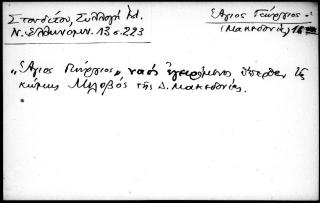 Σπουδαίου, Συλλογή Χφ.
Ν. Ελληνομν. 13 σ. 223
Άγιος Γεώργιος
(Μακεδονία) 16
„Άγιος Γεώργιος„ ναός εγειρόμενος ύπερθεν της
κώμης Μιλοβός της Δ. Μακεδονίας.